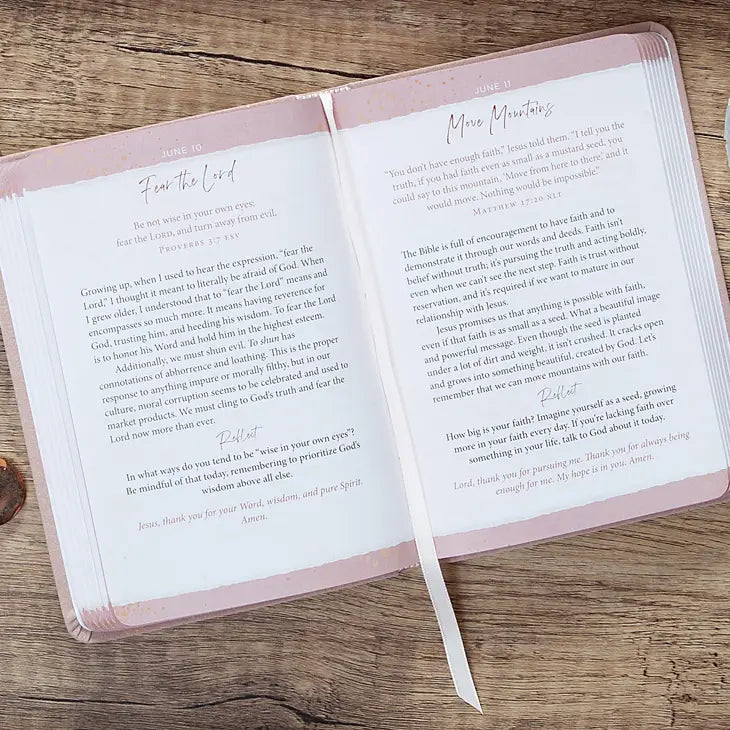 JUNE 10
Fear the Lord
Be not wise in your own eyes;
fear the LORD, and turn away from evil.
PROVERBS 3:7 ESV
Growing up, when I used to hear the expression, “fear the
Lord,” I thought it meant to literally be afraid of God. When
I grew older, I understood that to “fear the Lord” means and
encompasses so much more. It means having reverence for
God, trusting him, and heeding his wisdom. To fear the Lord
is to honor his Word and hold him in the highest esteem.
Additionally, we must shun evil. To shun has
connotations of abhorrence and loathing. This is the proper
response to anything impure or morally filthy, but in our
culture, moral corruption seems to be celebrated and used to
market products. We must cling to God’s truth and fear the
Lord now more than ever.
Reflect
In what ways do you tend to be “wise in your own eyes”?
Be mindful of that today, remembering to prioritize God’s
wisdom above all else.
Jesus, thank you for your Word, wisdom, and pure Spirit.
Amen.
JUNE 11
Move Mountains
“You don’t have enough faith,” Jesus told them. “I tell you the
truth, if you had faith even as small as a mustard seed, you
could say to this mountain, ‘Move from here to there,’ and it
would move. Nothing would be impossible.”
MATTHEW 17:20 NLT
The Bible is full of encouragement to have faith and to
demonstrate it through our words and deeds. Faith isn’t
belief without truth; it’s pursuing the truth and acting boldly,
even when we can’t see the next step. Faith is trust without
reservation, and it’s required if we want to mature in our
relationship with Jesus.
Jesus promises us that anything is possible with faith,
even if that faith is as small as a seed. What a beautiful image
and powerful message. Even though the seed is planted
under a lot of dirt and weight, it isn’t crushed. It cracks open
and grows into something beautiful, created by God. Let’s
remember that we can move mountains with our faith.
Reflect
How big is your faith? Imagine yourself as a seed, growing
more in your faith every day. If you’re lacking faith over
something in your life, talk to God about it today.
Lord, thank you for pursuing me. Thank you for always being
enough for me. My hope is in you. Amen.